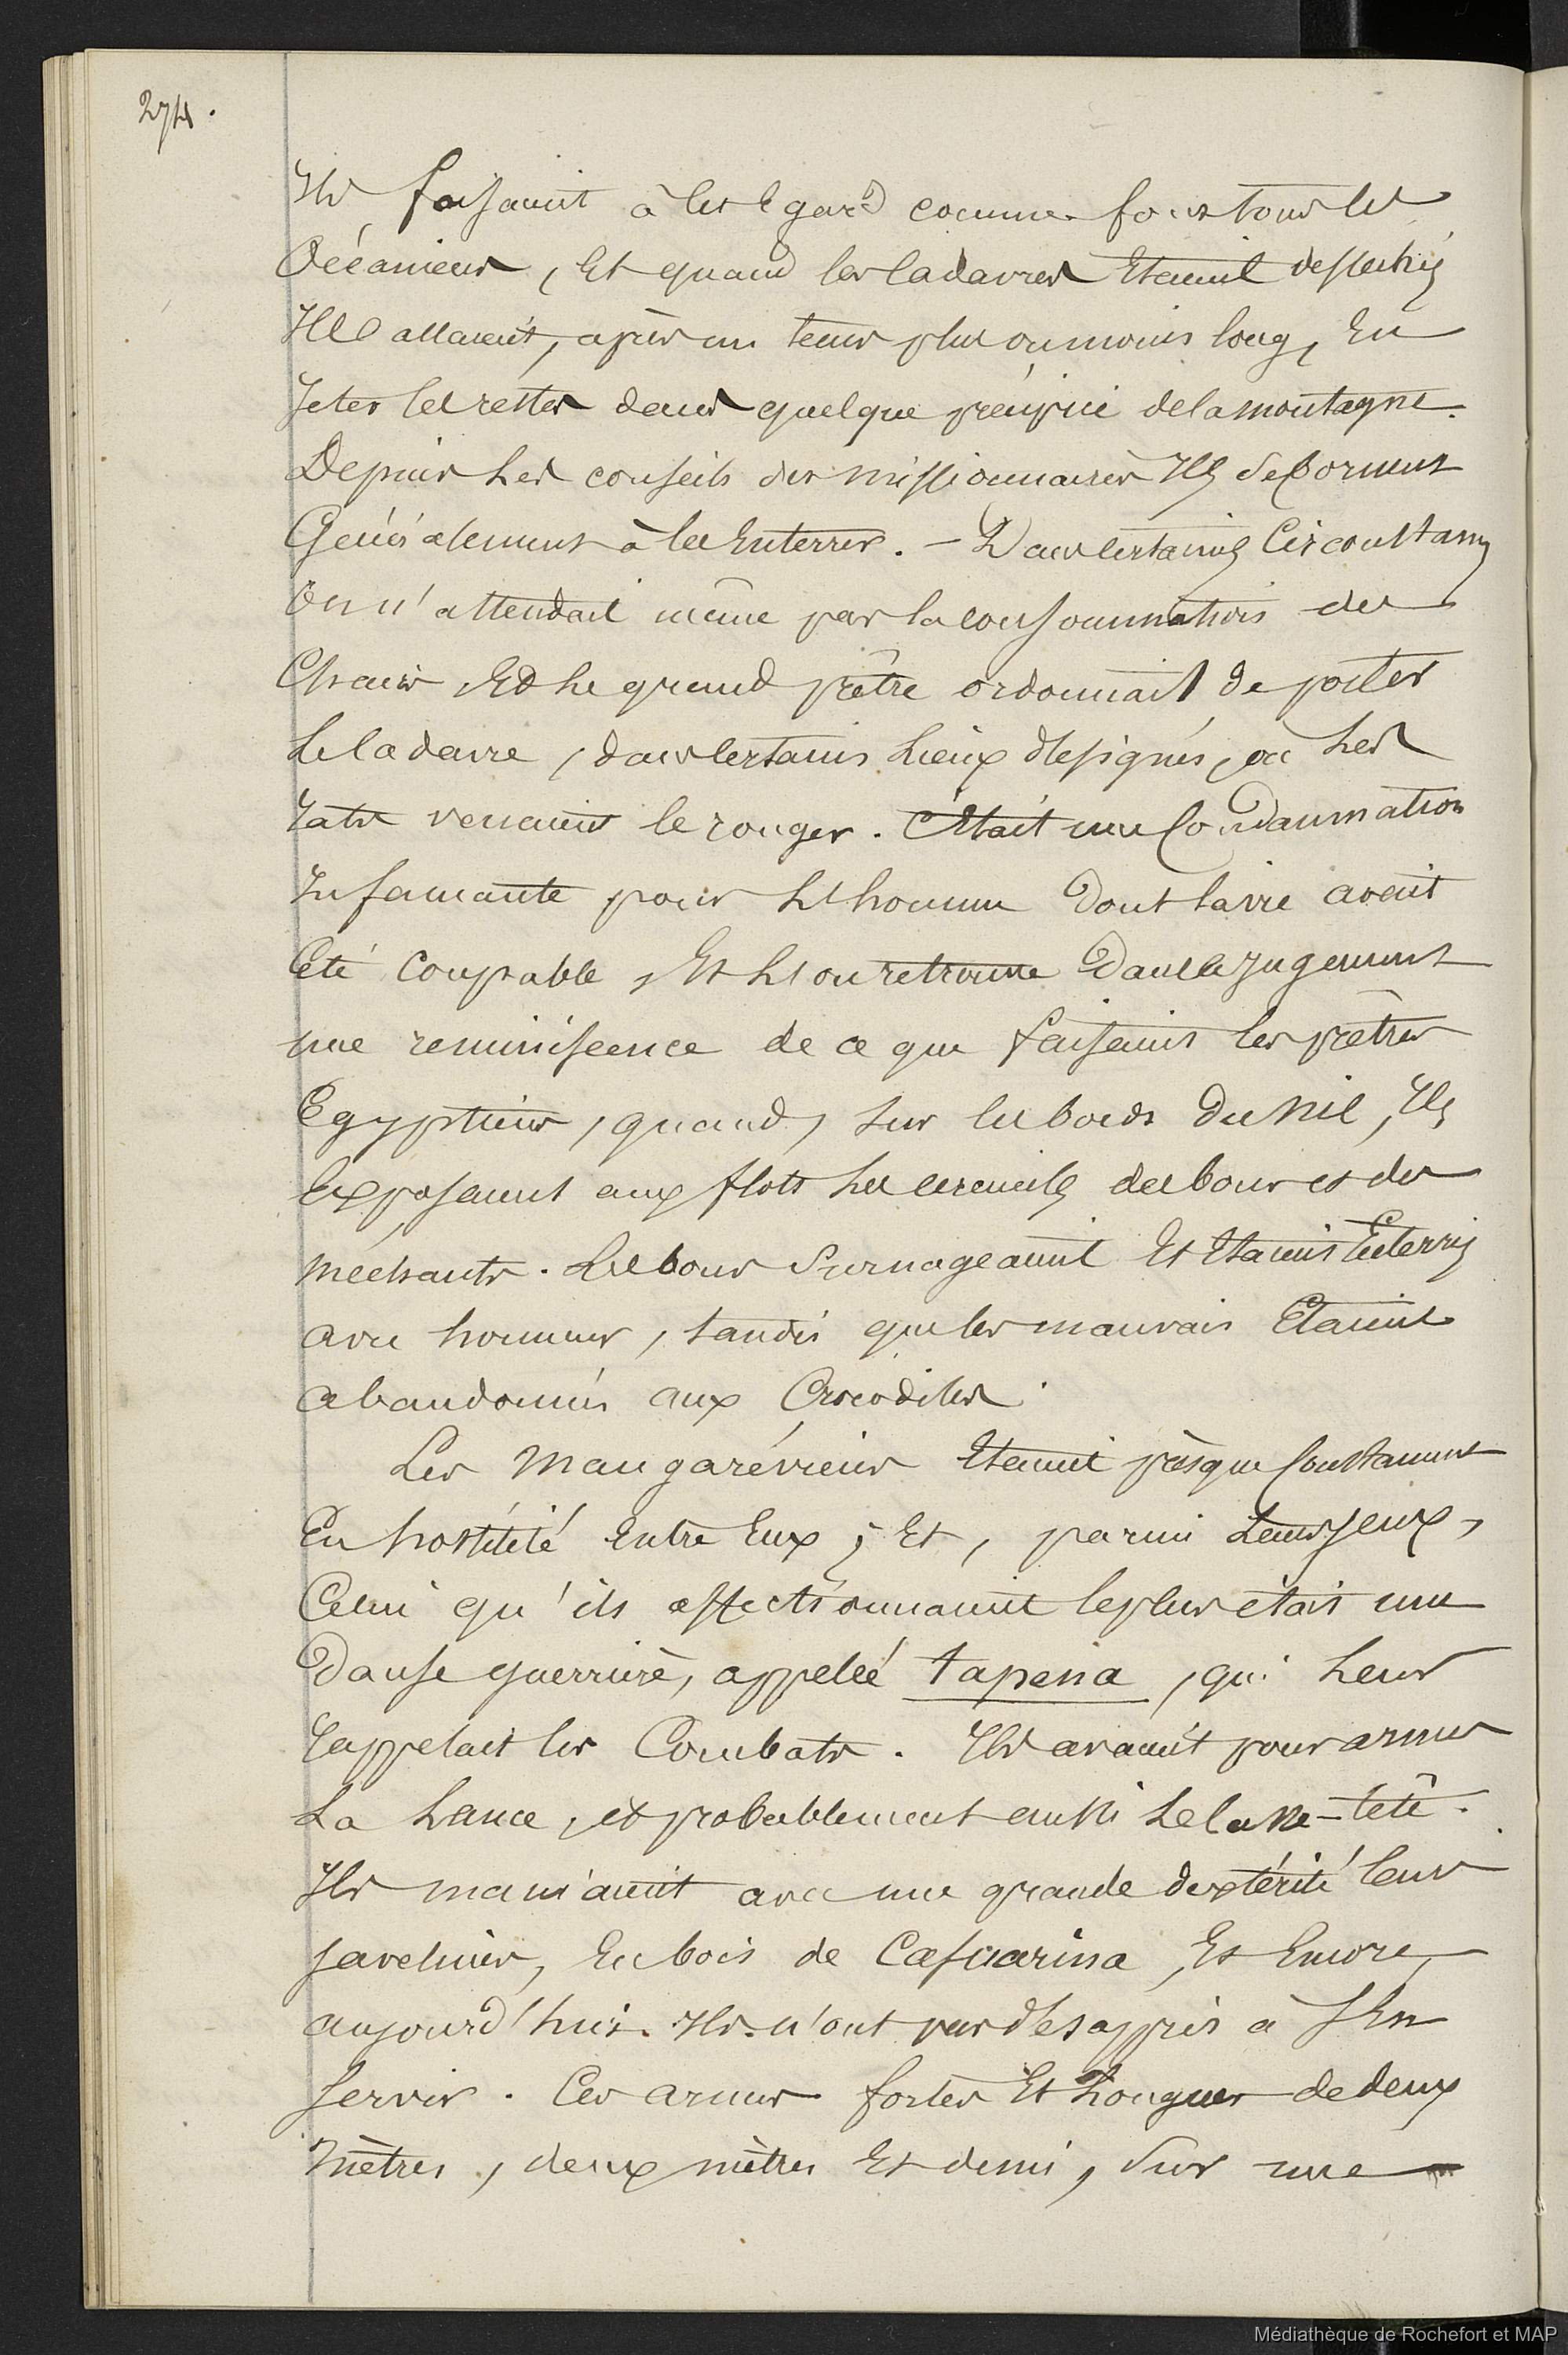 274.
Ils faisaient à cet égard comme font tous les
Océaniens, Et quand les Cadavres Etaient dessechés
Ils allaient, après un tems plus ou moins long, En
Jeter les restes dans quelque précipice de la montagne.
Depuis Les conseils des missionnaires Ils se bornent
Généralement à les Enterrer. — Dans Certaines Circonstances
On n'attendait même pas la consommation des
Chairs Et Le grand prêtre ordonnait de porter
Le Cadavre, dans Certains Lieux désignés, où Les
Rats venaient le ronger. C'Etait une Condamnation
Infamante pour L'homme Dont la vie avait
Eté Coupable, Et L'on retrouve Dans ce Jugement
une reminiscence de ce que faisaient les prêtres
Egyptiens, quand, sur les bords Du Nil, Ils
Exposaient aux flots Les cercueils des bons et des
méchants. Les bons Surnageaient Et Etaient Enterrés
avec honneur, tandis que les mauvais Etaient
abandonnés aux Crocodiles.
Les Mangaréviens Etaient présque Constamment
En hostilité Entre Eux; Et, parmi Leurs Jeux,
Celui qu'ils affectionnaient le plus était une
Danse guerrière, appelée tapena, qui Leur
Rappelait les Combats. Ils avaient pour armes
La Lance, et probablement aussi Le Casse-tête.
Ils maniaient avec une grande dextérité leurs
Javelines, En bois de Casuarina, Et Encore,
aujourd'hui. Ils n'ont pas désappris à s'En
servir. Ces armes fortes Et Longues de deux
mètres, deux mètres Et demi, Sur une
Médiathèque de Rochefort et MAP